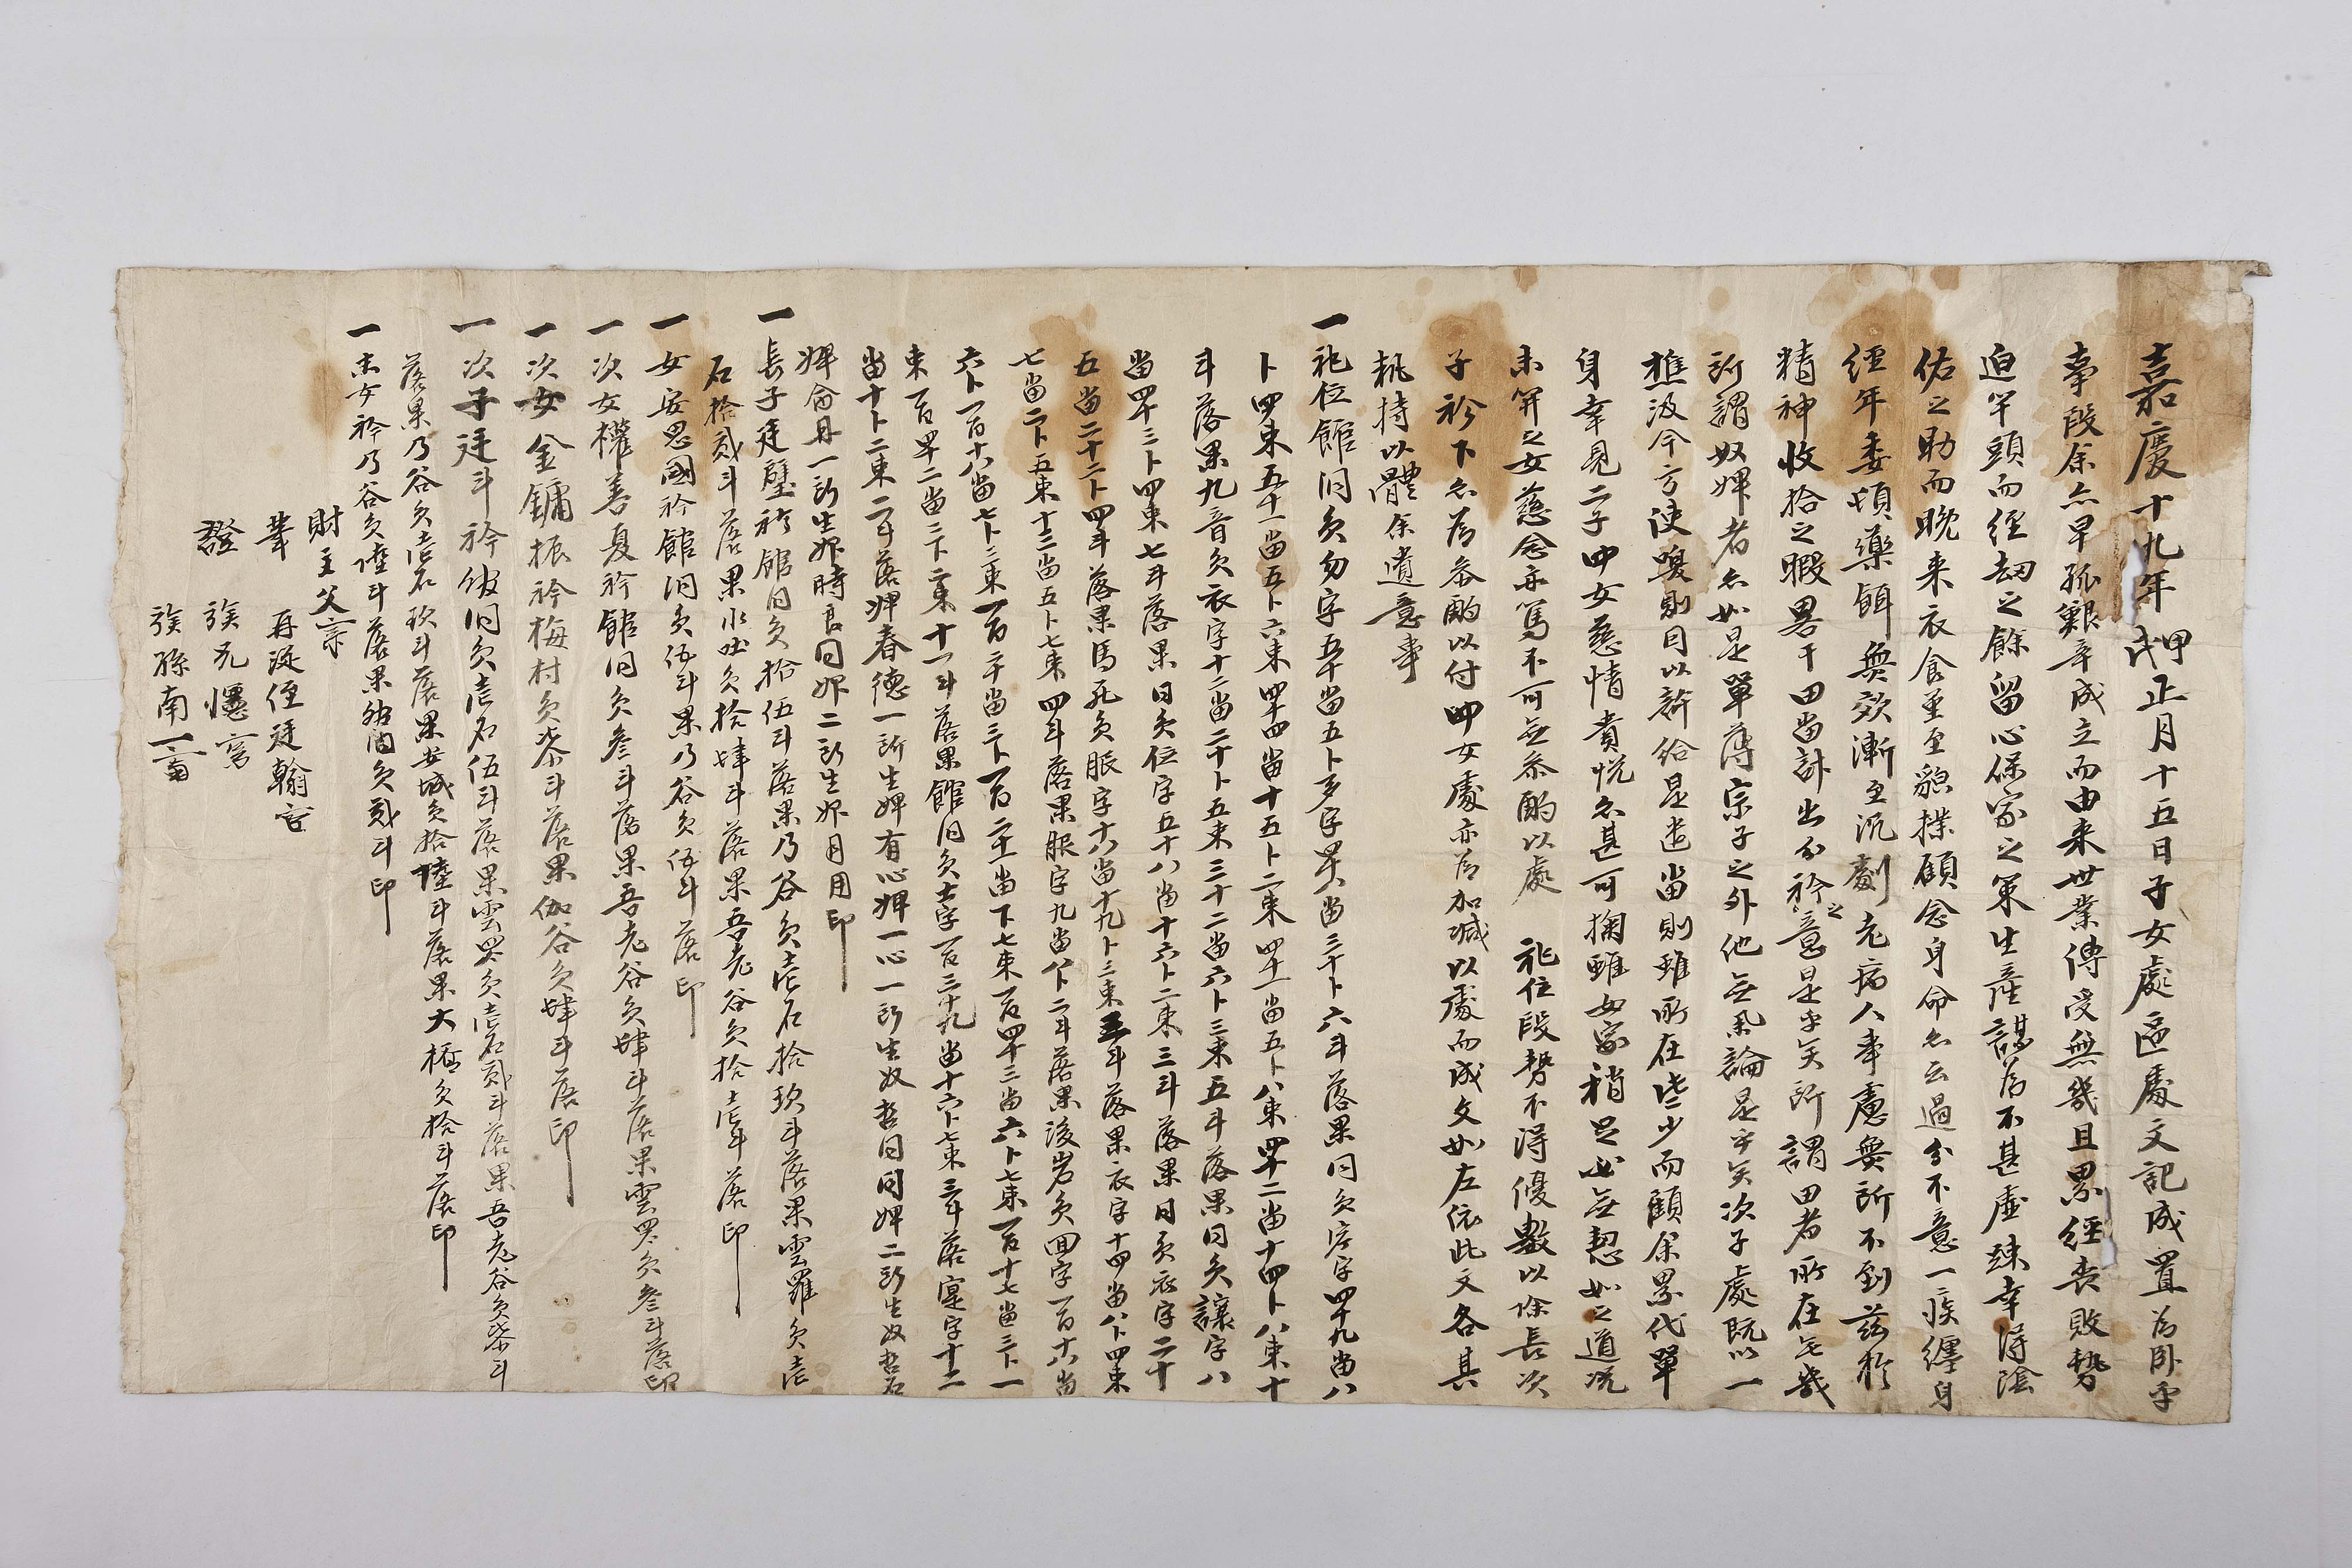 嘉慶十九年甲戌正月十五日子女處區處文記成置爲臥乎
事段余亦早孤艱辛成立而由來世業傳受無幾且累經喪敗勢
迫竿頭而經劫之餘留心保家之策生產謀爲不甚虛踈幸得陰
佑之助而晩來衣食至至貌㨾顧念身命亦云過分不意一疾纏身
經年委頓藥餌無效漸至沉劇老病人事慮無所不到玆於
精神收拾之暇畧干田畓計出分衿之意是乎矣所謂田者所在無幾
所謂奴婢者亦如是單薄宗子之外他無舉論是乎矣次子處既以一
樵汲今方使喚則目以許給是遣畓則雖所在些少而顧余累代單
身幸見二子四女慈情貴悅亦甚可掬雖女家稍足必無恝如之道况
未筓之女慈念亦篤不可無叅酌以處 祀位段勢不得優數以除長次
子衿下亦爲叅酌以付四女處亦爲加減以處而成文如左依此文各其
執持以體余遺意事
一祀位館洞員勿字五十畓五卜多字四十六畓三十卜六斗落果同員字四十九畓八
卜四束五十一畓五卜六束四十四畓十五卜二束四十一畓五卜八束四十二畓十四卜八束十
斗落果九音員衣字十二畓二十卜五束三十二畓六卜三束五斗落果同員讓字八
畓四十三卜四束七斗落果同員位字五十八畓十六卜二束三斗落果同員衣字二十
五畓二十二卜四斗落果馬死員服字十六畓十九卜三束三斗落果衣字十四畓八卜四束
七畓二卜五束十三畓五卜七束四斗落果服字九畓八卜二斗落果後岩員字一百十六畓
六卜一百十八畓七卜三束一百二十畓三卜一百二十一畓卜七束一百四十三畓六卜七束一百十七畓三卜一
束一百四十二畓三卜二束十一斗落果館洞員字一百三十九畓十六卜七束三斗落寔字十二
畓十卜二束二斗落婢春德一所生婢有心婢一心一所生奴哲同同婢二所生奴哲石
婢僉丹一所生婢時良同婢二所生婢月用印
一長子廷璧衿館洞員拾伍斗落果乃谷員壹石拾玖斗落果雲羅員壹
石拾貳斗落果水坐員拾肆斗落果吾老谷員拾壹斗落印
一女安思國衿館洞員伍斗果乃谷員伍斗落印
一次女權養夏衿館洞員叁斗落果吾老谷員肆斗落果雲羅員叁斗落印
一次女金鏞振衿梅村員柒斗落果伽谷員肆斗落印
一次子廷斗衿館洞員壹石伍斗落果雲羅員壹石貳斗落果吾老谷員柒斗
落果乃谷員壹石玖斗落果安城員拾陸斗落果大橋員拾斗落印
一末女衿乃谷員陸斗落果員貳斗印
財主父
筆 再從侄廷翰
證 族兄
族孫南一